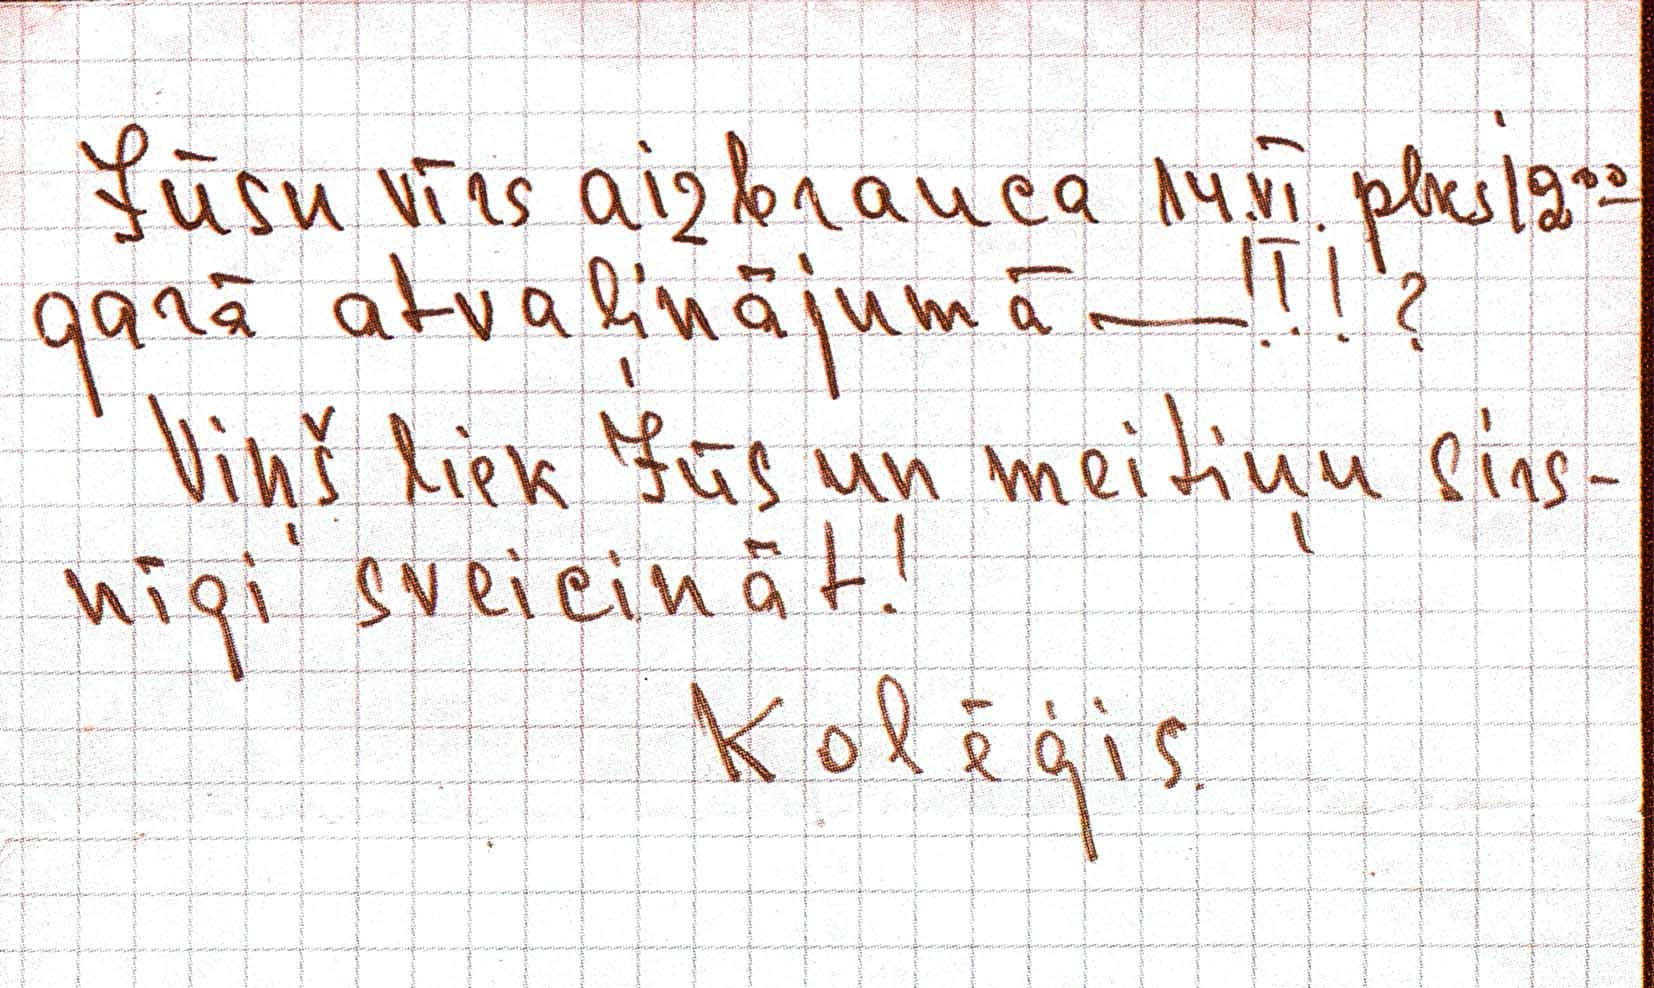 Jūsu vīrs aizbrauca 14.VI. plks 12⁰⁰
garā atvaļinājumā — !!!?
Viņš liek Jūs un meitiņu sirs-
nīgi sveicināt!
Kolēģis.